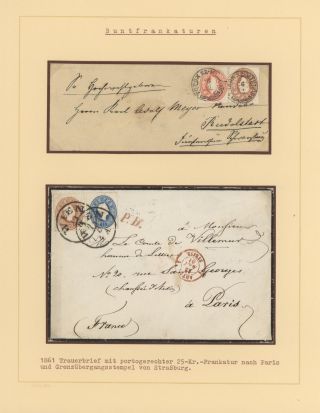 Buntfrankaturen
Sr Hochwohlgeboren
Herrn Karl Adolf Meyer
Rudolstadt
WIEN
P.D.
à Monsieur
Le Comte de Villemur
homme de Lettres
No 20. rue St Georges
(chaussée d'Antin)
à Paris
(France)
1861 Trauerbrief mit portogerechter 25-Kr.-Frankatur nach Paris
und Grenzübergangsstempel von Straßburg.